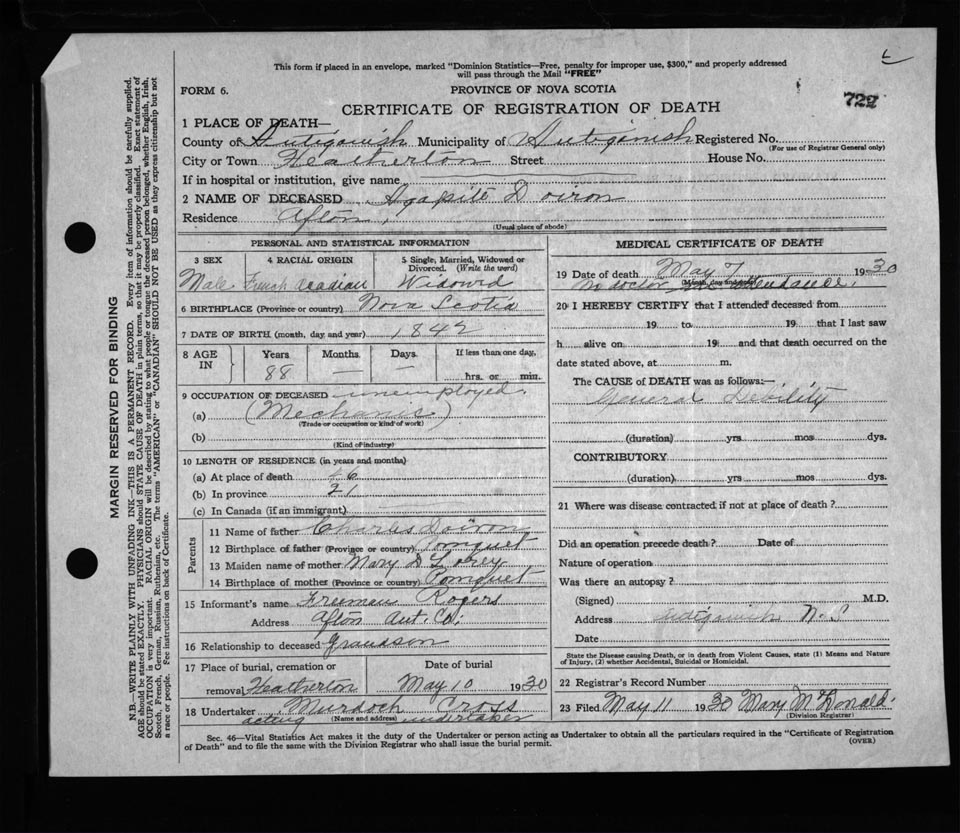 This form if placed in an envelope, marked "Dominion Statistics—Free, penalty for improper use, $300," and properly addressed
will pass through the Mail "FREE"
FORM 6. PROVINCE OF NOVA SCOTIA
729
CERTIFICATE OF REGISTRATION OF DEATH
1 PLACE OF DEATH—
County of Antigonish Municipality of Antigonish Registered No.
(For use of Registrar General only)
City or Town Heatherton Street House No.
If in hospital or institution, give name
2 NAME OF DECEASED Agapite Doiron
Residence Afton,
(Usual place of abode)
PERSONAL AND STATISTICAL INFORMATION
3 SEX 4 RACIAL ORIGIN 5 Single, Married, Widowed or
Divorced. (Write the word)
Male French Acadian Widowd
6 BIRTHPLACE (Province or country) Nova Scotia
7 DATE OF BIRTH (month, day and year) 1842
8 AGE IN Years Months Days If less than one day,
88 — — hrs. or min.
9 OCCUPATION OF DECEASED unemployed
(a) (Mechanic)
(Trade or occupation or kind of work)
(b)
(Kind of industry)
10 LENGTH OF RESIDENCE (in years and months)
(a) At place of death
(b) In province 21
(c) In Canada (if an immigrant)
Parents
11 Name of father Charles Doiron
12 Birthplace of father (Province or country) Pomquet
13 Maiden name of mother Mary
14 Birthplace of mother (Province or country) Pomquet
15 Informant's name Freeman Rogers
Address Afton Ant. Co.
16 Relationship to deceased Grandson
17 Place of burial, cremation or Date of burial
removal Heatherton May 10 1930
18 Undertaker Murdoch Cross
(Name and address)
acting undertaker
MEDICAL CERTIFICATE OF DEATH
19 Date of death May 7 1930
(Month, day and year)
No doctor in attendance.
20 I HEREBY CERTIFY that I attended deceased from
19 to 19 that I last saw
h alive on 19 and that death occurred on the
date stated above, at m.
The CAUSE of DEATH was as follows:—
General Debility
(duration) yrs mos dys.
CONTRIBUTORY
(duration) yrs mos dys.
21 Where was disease contracted if not at place of death?
Did an operation precede death? Date of
Nature of operation
Was there an autopsy?
(Signed) M.D.
Address Antigonish N.S
Date
State the Disease causing Death, or in death from Violent Causes, state (1) Means and Nature
of Injury, (2) whether Accidental, Suicidal or Homicidal.
22 Registrar's Record Number
23 Filed May 11 1930 Mary McDonald
(Division Registrar)
Sec. 46—Vital Statistics Act makes it the duty of the Undertaker or person acting as Undertaker to obtain all the particulars required in the "Certificate of Registration
of Death" and to file the same with the Division Registrar who shall issue the burial permit.
(OVER)
MARGIN RESERVED FOR BINDING
N.B.—WRITE PLAINLY WITH UNFADING INK—THIS IS A PERMANENT RECORD. Every item of information should be carefully supplied.
AGE should be stated EXACTLY. PHYSICIANS should STATE CAUSE OF DEATH in plain terms, so that it may be properly classified. Exact statement of
OCCUPATION is very important. RACIAL ORIGIN will be described by stating to what people or tongue the deceased person belonged, whether English, Irish,
Scotch, French, German, Russian, Ruthenian, etc. The terms "AMERICAN" or "CANADIAN" SHOULD NOT BE USED as they express citizenship but not
a race or people. Fee instructions on back of Certificate.